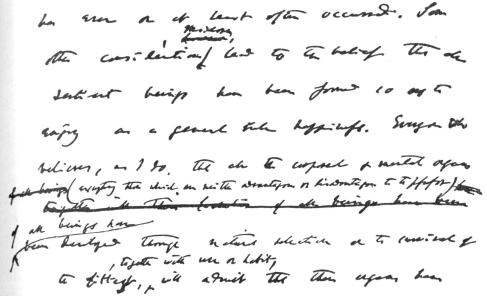 has ever or at least often occurred. Some
moreover,
other considerations, lead to the belief that all
sentient beings have been formed so as to
enjoy as a general rule happiness. Everyone who
believes, as I do, that all the corporeal & mental organs
(excepting those which are neither advantageous or disadvantageous to the possessor)
of all beings have been
of all beings have
been developed through natural selection or the survival of
, together with use or habit,
the fittest, will admit that these organs have